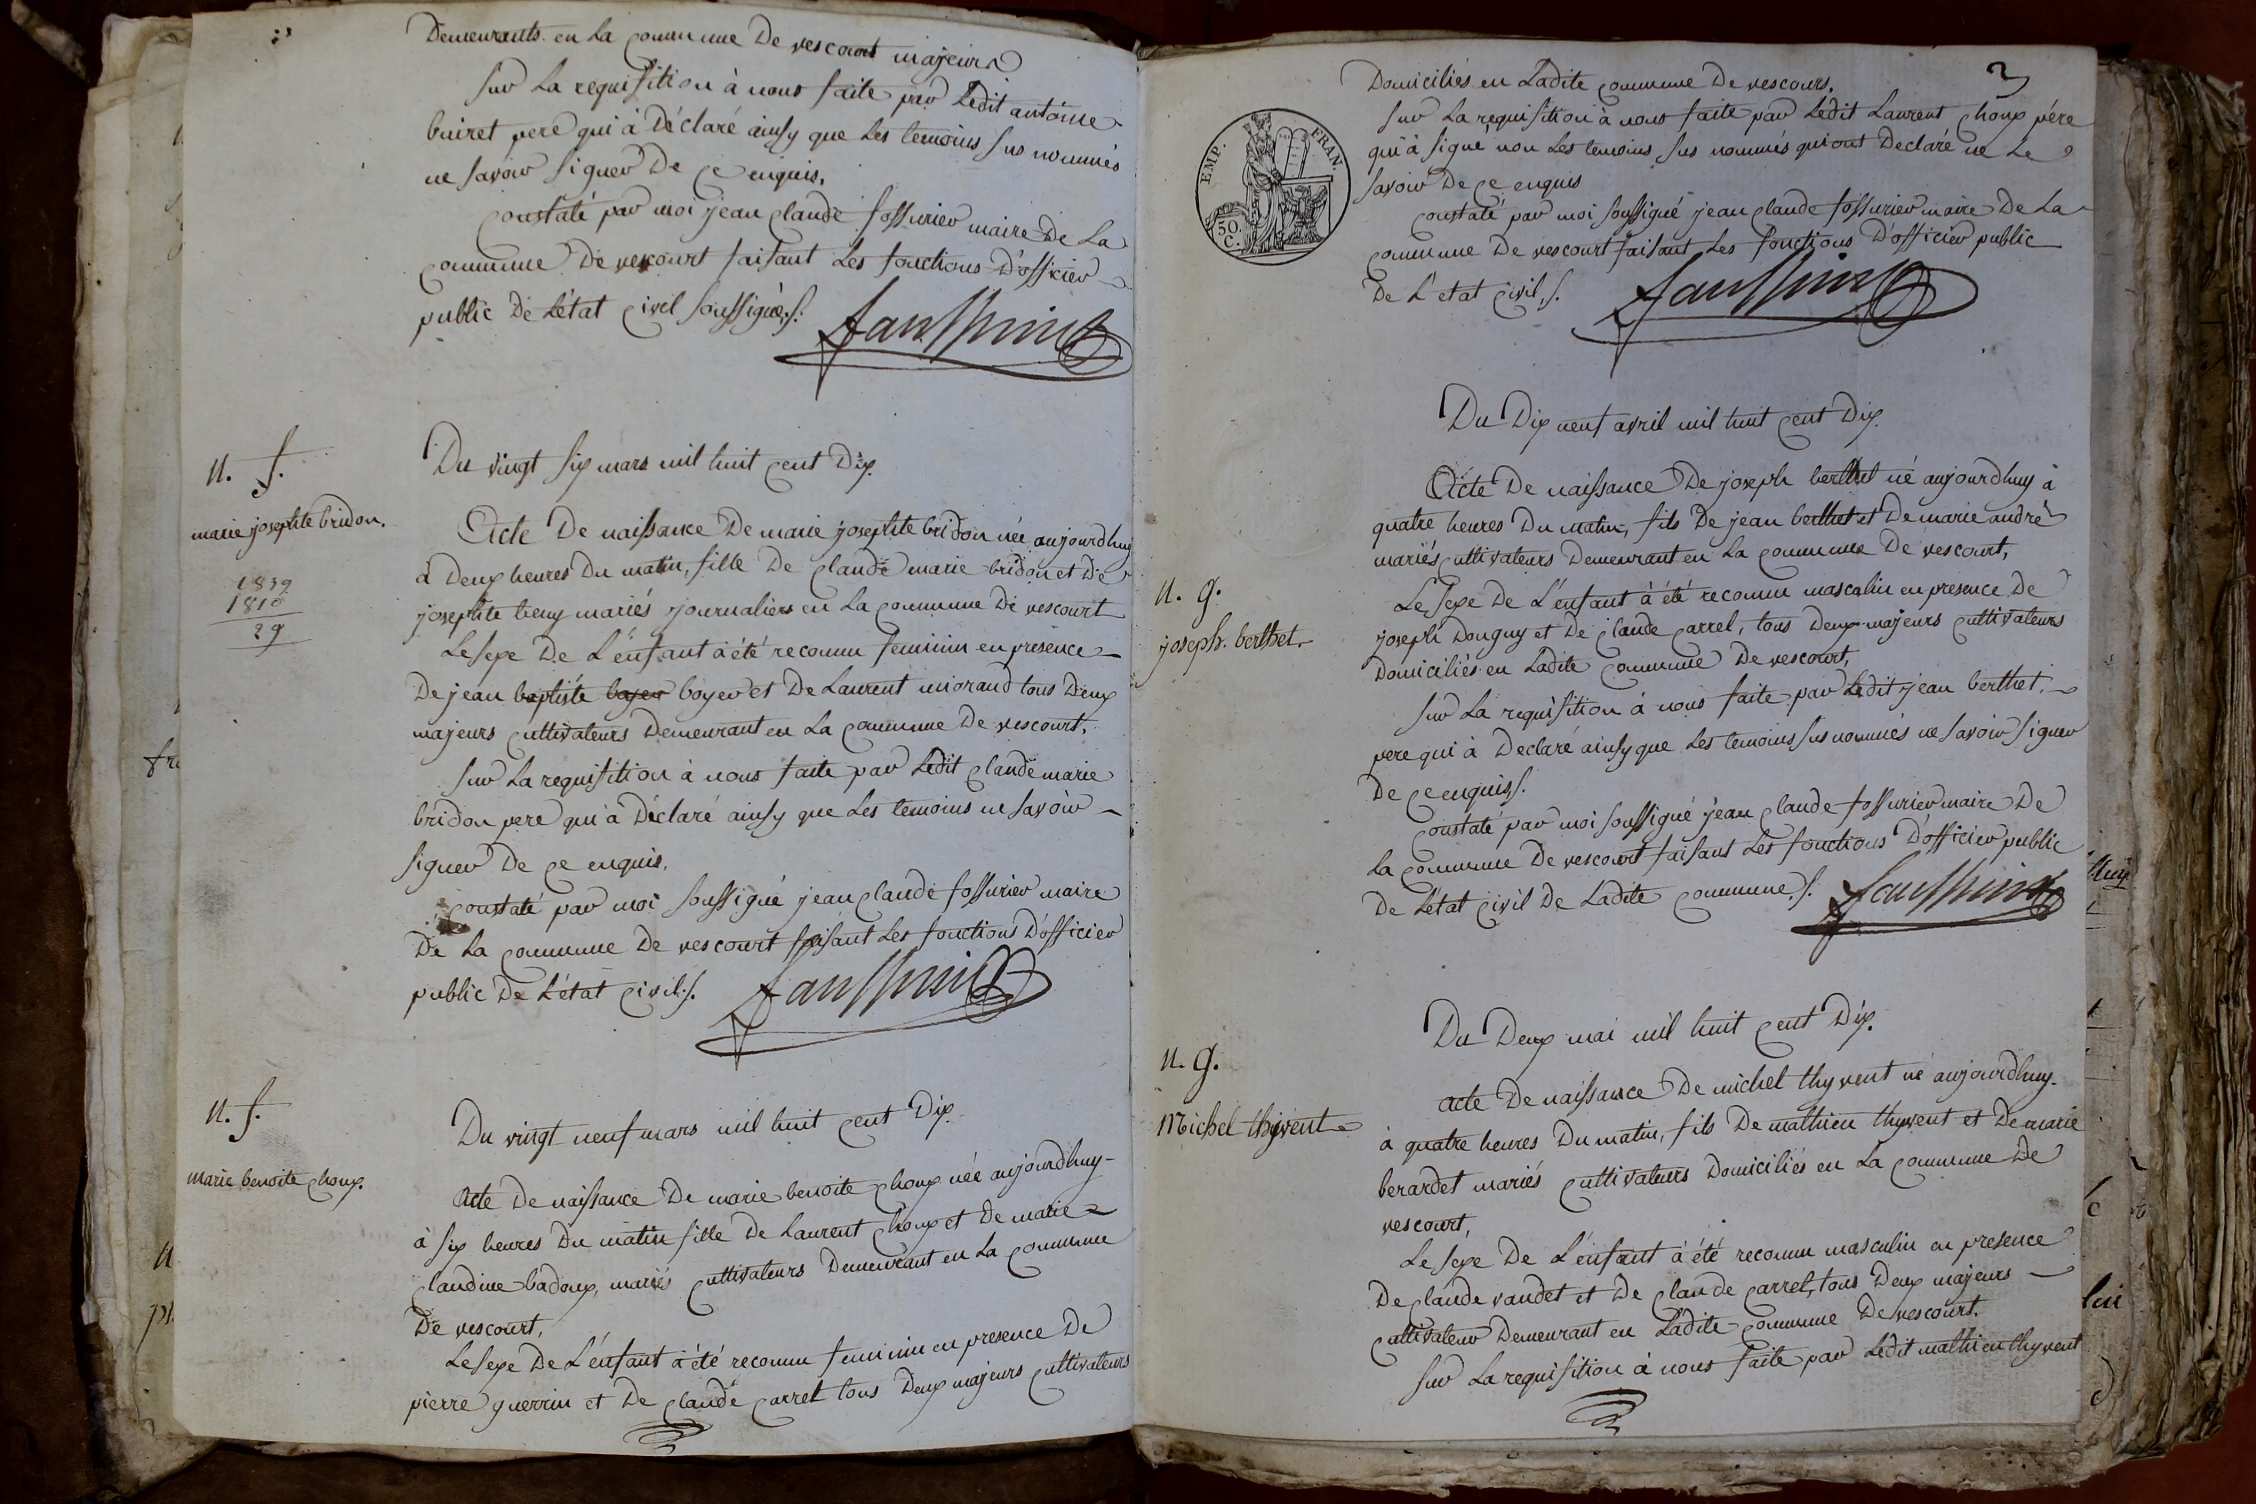 Demeurants en La Commune De vescourt majeurs
Sur La requisition à nous faite par Ledit antoine
buiret pere qui à Déclaré ainsy que Les temoins sus nommés
ne savoir signer De Ce enquis.
Constaté par moi jean Claude fossurier maire De La
Commune De vescourt faisant Les fonctions D'officier
public De L'état Civil soussigné./.
n. f.
Du vingt six mars mil huit Cent Dix.
marie josephte bridon.
1839
1810
29
Acte De naissance De marie josephte bridon née aujourdhuy
à Deux heures Du matin, fille De Claude marie bridon et De
josephte mariés journaliers en La Commune De vescourt
Le sexe De L'enfant à été reconnu feminin en presence
De jean baptiste boyer boyer et De Laurent morand tous Deux
majeurs Cultivateurs Demeurant en La Commune De vescourt.
Sur La requisition à nous faite par Ledit Claude marie
bridon pere qui à Déclaré ainsy que Les temoins ne savoir
signer De Ce enquis.
Constaté par moi soussigné jean Claude fossurier maire
De La Commune De vescourt faisant Les fonctions D'officier
public De L'état Civil./.
n. f.
Du vingt neuf mars mil huit Cent Dix.
marie benoite Choux.
Acte De naissance De marie benoite Choux née aujourdhuy
à six heures Du matin fille De Laurent Choux et De marie
Claudine badoux, mariés Cultivateurs Demeurant en La Commune
De vescourt,
Le sexe De L'enfant à été reconnu feminin en presence De
pierre guerrin et De Claude Carrel tous Deux majeurs Cultivateurs
3
EMP. FRAN.
50. C.
Domiciliés en Ladite Commune De vescours,
Sur La requisition à nous faite par Ledit Laurent Choux pére
qui à signé non Les temoins sus nommés qui ont Declaré ne Le
savoir De Ce enquis
Constaté par moi soussigné jean Claude fossurier maire De La
Commune De vescourt faisant Les fonctions D'officier public
De L'etat Civil,/.
Du Dix neuf avril mil huit Cent Dix.
n. g.
joseph. berthet.
Acte De naissance De joseph berthet né aujourdhuy à
quatre heures Du matin, fils De jean berthet et De marie andrè
mariés Cultivateurs Demeurant en La Commune De vescourt,
Le sexe De L'enfant à été reconnu masculin en presence De
joseph Donguy et De Claude Carrel, tous Deux majeurs Cultivateurs
Domiciliés en Ladite Commune De vescourt,
Sur La requisition à nous faite par Ledit jean berthet.
pere qui à Declaré ainsy que Les temoins sus nommés ne savoir signer
De Ce enquis/.
Constaté par moi soussigné jean Claude fossurier maire De
La Commune De vescourt faisant Les fonctions D'officier public
De L'état Civil De Ladite Commune./.
Du Deux mai mil huit Cent Dix.
n. g.
Michel thyvent
acte De naissance De michel thyvent né aujourdhuy.
à quatre heures Du matin, fils De mathieu thyvent et De marie
berardet mariés Cultivateurs Domiciliés en La Commune De
vescourt,
Le sexe De L'enfant à été reconnu masculin en presence
De Claude vaudet et De Claude Carrel, tous Deux majeurs
Cultivateur Demeurant en Ladite Commune De vescourt.
Sur La requisition à nous faite par Ledit mathieu thyvent